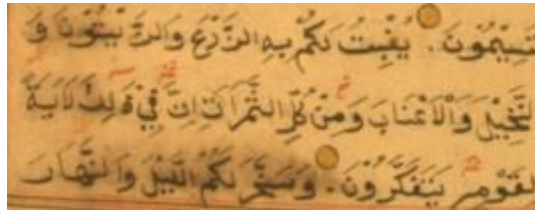 تسيمون يُنْبِتُ لَكُمْ بِهِ الزَّرْعَ وَالزَّيْتُونَ وَ
النَّخِيلَ وَالْاَعْنَابَ وَمِنْ كُلِّ الثَّمَرَاتِ اِنَّ فِي ذٰلِكَ لَاٰيَةً
لِقَوْمٍ يَتَفَكَّرُونَ وَسَخَّرَ لَكُمُ الَّيْلَ وَالنَّهَارَ